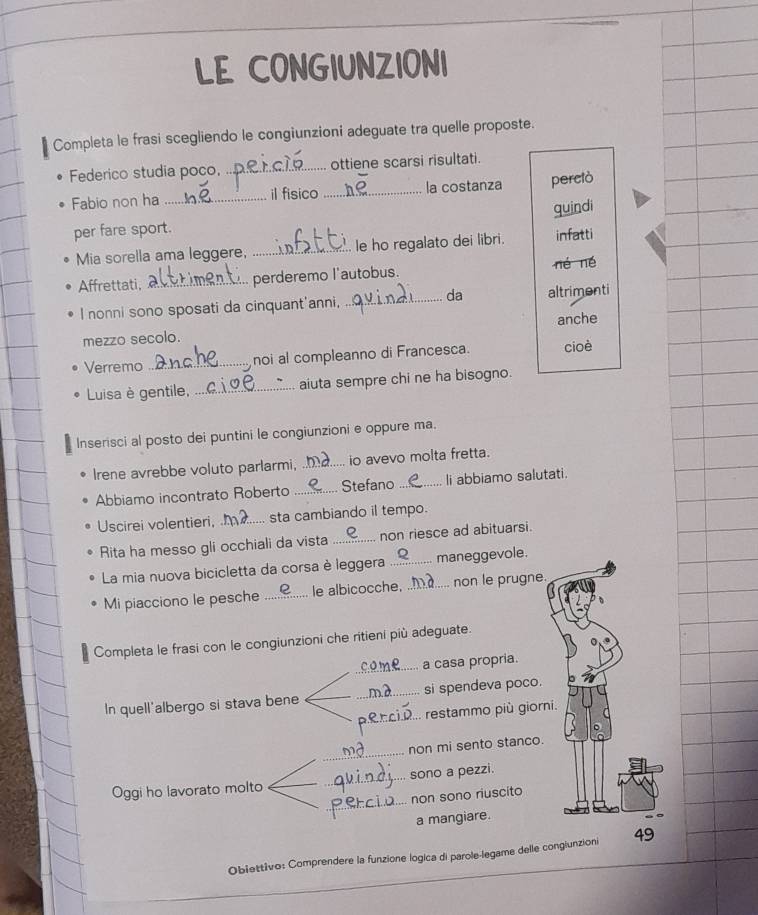 LE CONGIUNZIONI
Completa le frasi scegliendo le congiunzioni adeguate tra quelle proposte.
• Federico studia poco, perciò ottiene scarsi risultati.
• Fabio non ha né il fisico né la costanza
per fare sport.
• Mia sorella ama leggere, infatti le ho regalato dei libri.
• Affrettati, altrimenti perderemo l'autobus.
• I nonni sono sposati da cinquant'anni, quindi da
mezzo secolo.
• Verremo anche noi al compleanno di Francesca.
• Luisa è gentile, cioè aiuta sempre chi ne ha bisogno.
perciò
quindi
infatti
né né
altrimenti
anche
cioè
Inserisci al posto dei puntini le congiunzioni e oppure ma.
• Irene avrebbe voluto parlarmi, ma io avevo molta fretta.
• Abbiamo incontrato Roberto e Stefano e li abbiamo salutati.
• Uscirei volentieri, ma sta cambiando il tempo.
• Rita ha messo gli occhiali da vista e non riesce ad abituarsi.
• La mia nuova bicicletta da corsa è leggera e maneggevole.
• Mi piacciono le pesche e le albicocche, ma non le prugne.
Completa le frasi con le congiunzioni che ritieni più adeguate.
come a casa propria.
In quell'albergo si stava bene ma si spendeva poco.
perciò restammo più giorni.
ma non mi sento stanco.
Oggi ho lavorato molto quindi sono a pezzi.
perciò non sono riuscito
a mangiare.
Obiettivo: Comprendere la funzione logica di parole-legame delle congiunzioni
49